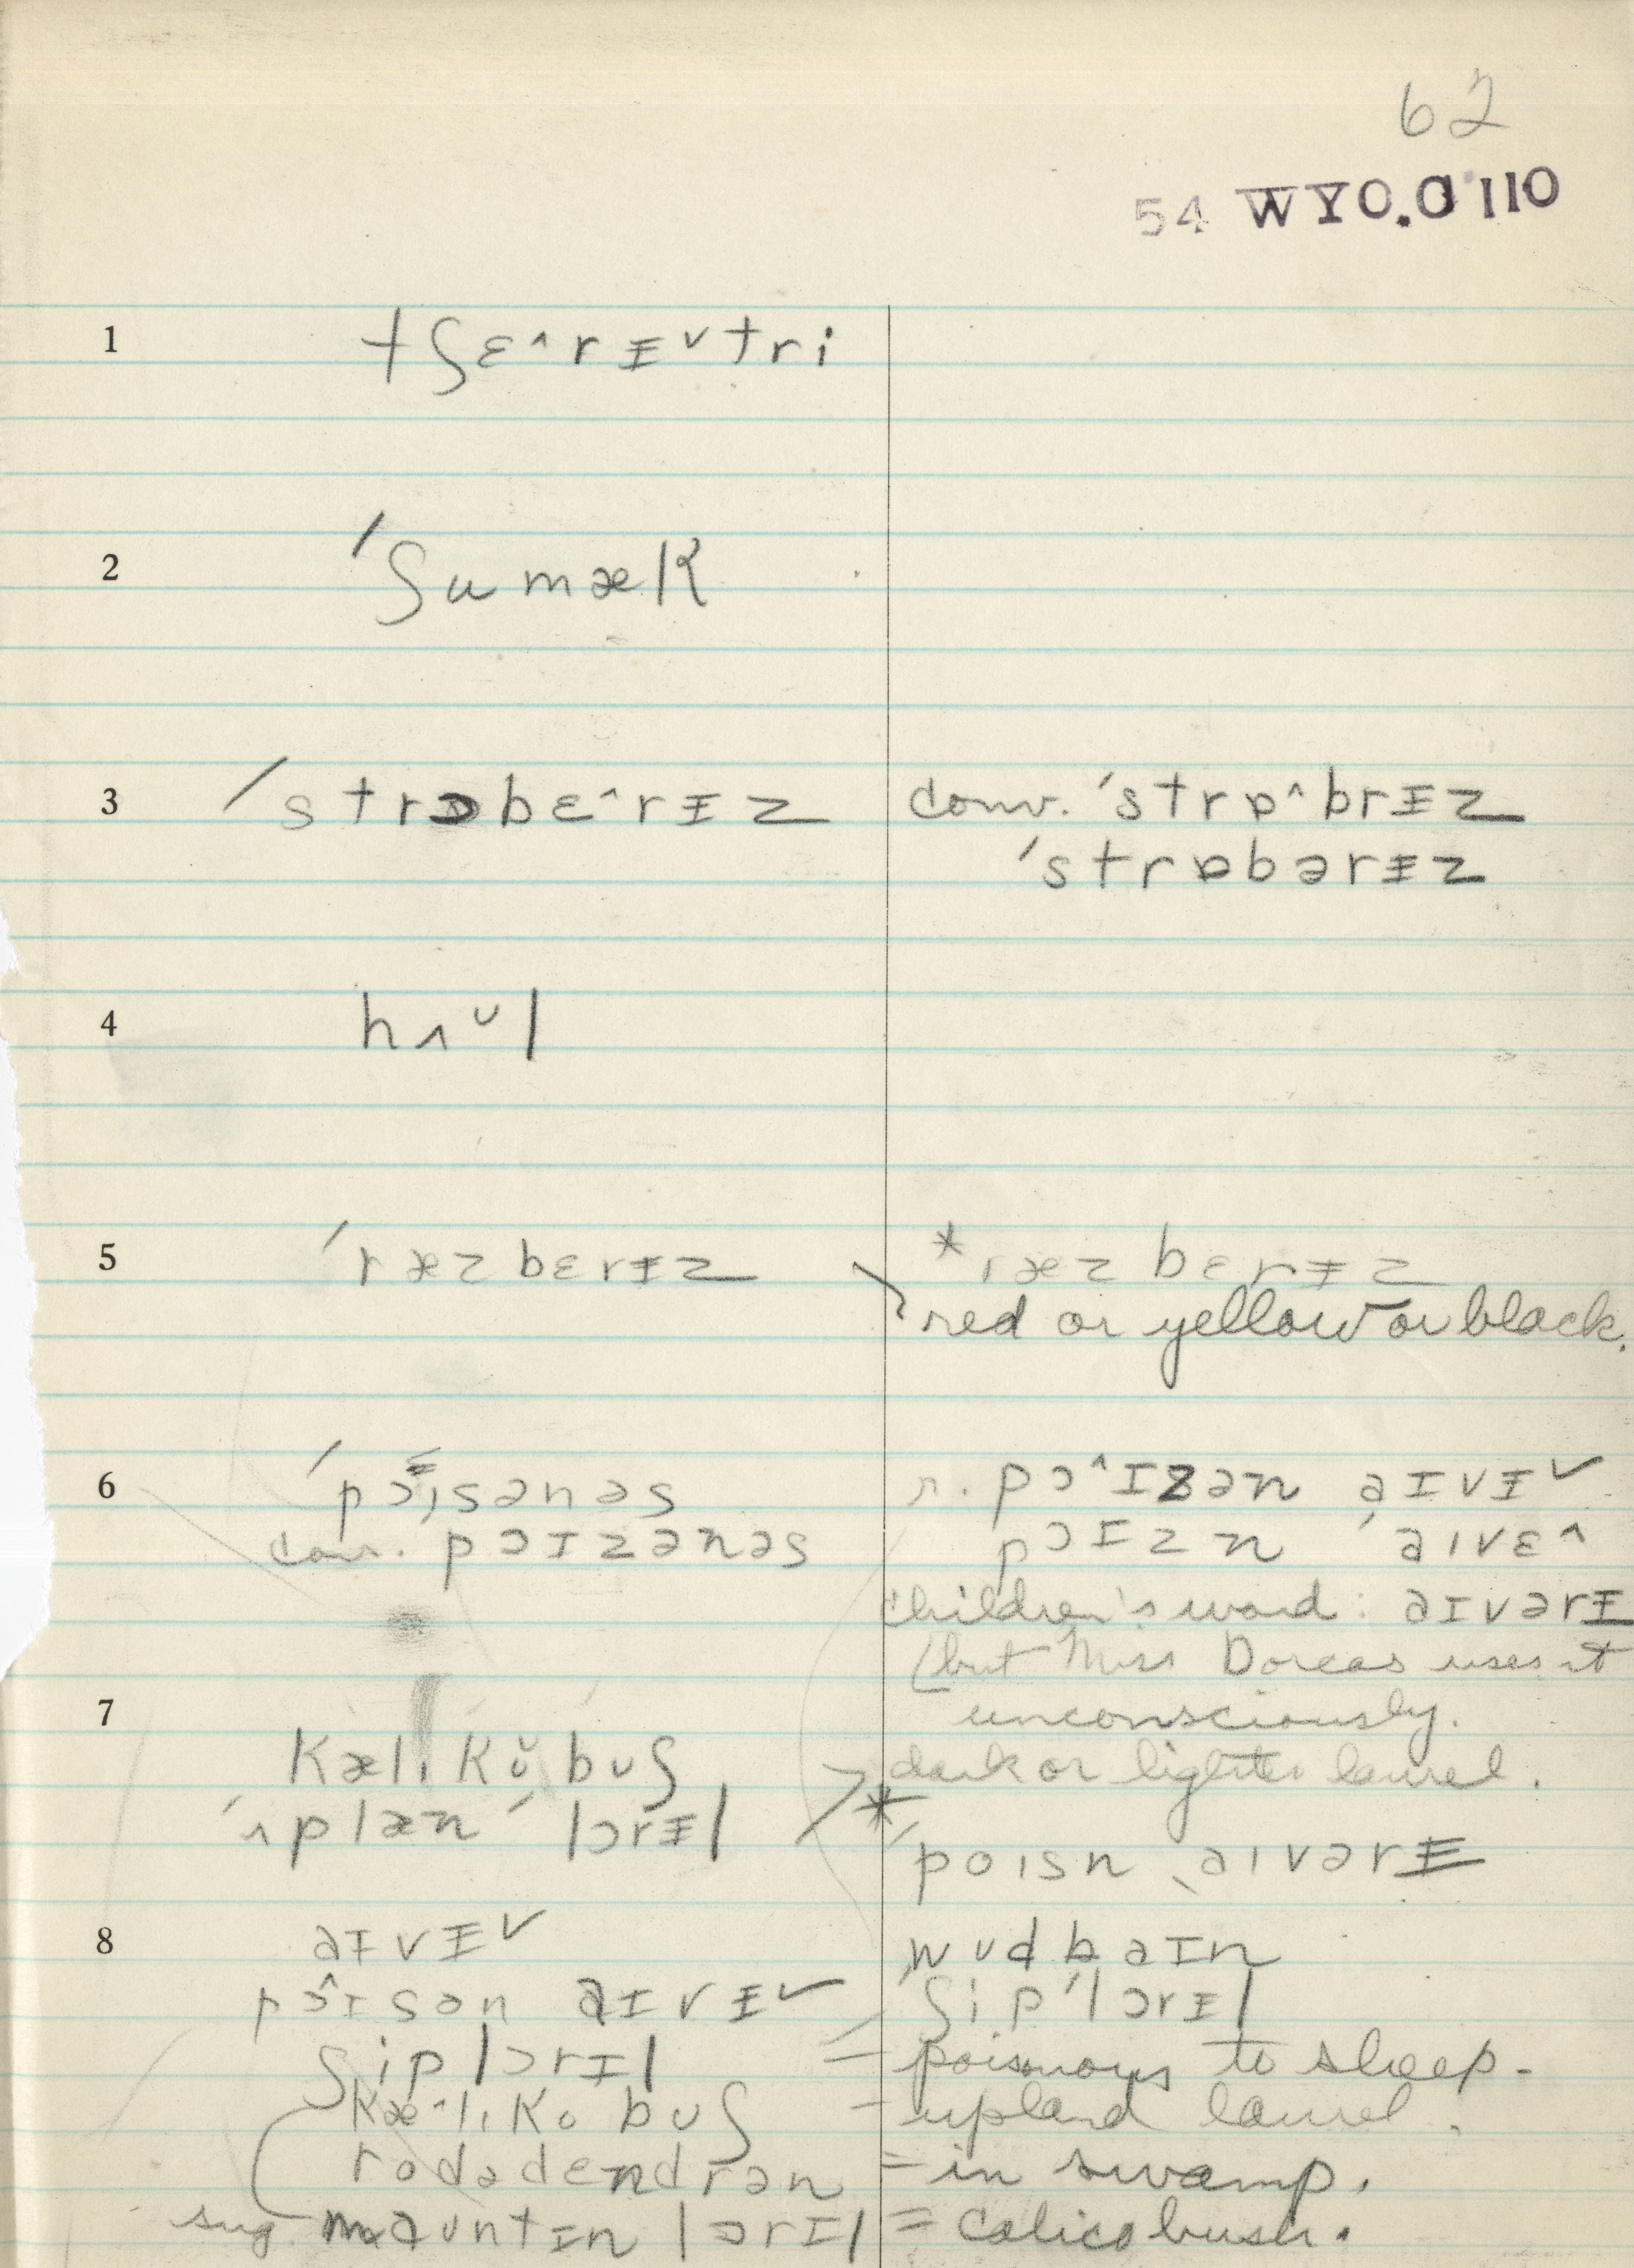 62
54 WYO.G 110
1 tʃɛ^rɪ̵ˇtri
2 ˈʃumæk
3 ˈstrɔbɛ^rɪ̵z conv. ˈstrɒ^brɪ̵z
ˈstrɒbərɪ̵z
4 hʌˇl
5 ˈræzbɛrɪ̵z *ræzbɛrɪ̵z
red or yellow or black.
6 ˈpɔɪsənəs r. pɔ^ɪzən aɪvɪ̵ˇ
conv. pɔɪzənəs pɔɪzn ˈaɪvɛ^
children's word: aɪvərɪ̵
(but Miss Dorcas uses it
7 unconsciously.
kælɪkoˇbʊʃ dark or lighter laurel.
ˈʌplænˈlɔrɪ̵l *
ˈpoɪsn ˌaɪvərɪ̵
8 aɪvɪ̵ˇ wʊdbaɪn
pɔ^ɪsən aɪvɪ̵ˇ ʃipˈlɔrɪ̵l
ʃiplɔrɪ̵l = poisonous to sheep.
kæ^lɪko bʊʃ – upland laurel.
rodədɛndrən = in swamp.
sug. maʊntɪ̵n lɔrɪ̵l = calico bush.